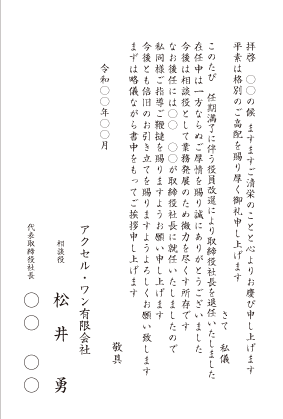 拝啓　〇〇の候 ますますご清栄のことと心よりお慶び申し上げます
平素は格別のご高配を賜り厚く御礼申し上げます
さて 私儀
このたび 任期満了に伴う役員改選により取締役社長を退任いたしました
在任中は一方ならぬご厚情を賜り誠にありがとうございました
今後は相談役として業務発展のため微力を尽くす所存です
なお後任には〇〇 〇〇が取締役社長に就任いたしましたので
私同様ご指導ご鞭撻を賜りますようお願い申し上げます
今後とも倍旧のお引き立てを賜りますようよろしくお願い致します
まずは略儀ながら書中をもってご挨拶申し上げます
敬具
令和〇〇年〇〇月
アクセル・ワン有限会社
相談役　松井 勇
代表取締役社長　〇〇 〇〇